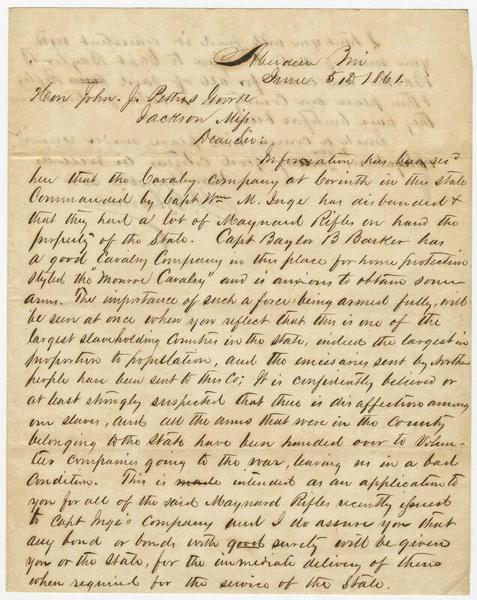 Aberdeen Mi
June 5th 1861.
Hon John. J. Pettus Govr
Jackson Miss
Dear Sir:
Information has been recd
here that the Cavalry Company at Corinth in this State
Commanded by Capt Wm M. Inge has disbanded &
that they had a lot of Maynard Rifles on hand the
property of the State. Capt Baylor B Barker has
a good Cavalry Company in this place for home protection
styled the "Monroe Cavalry" and is anxious to obtain some
arms. The importance of such a force being armed fully, will
be seen at once when you reflect that this is one of the
largest slaveholding Counties in the state, indeed the largest in
proportion to population, and the emissaries sent by Northern
people have been sent to this Co; It is confidently believed or
at least strongly suspected that there is disaffection among
our slaves, and all the arms that were in the County
belonging to the State have been handed over to Volun-
teer companies going to the war, leaving us in a bad
Condition. This is made intended as an application to
you for all of the said Maynard Rifles recently issued
to Capt Inge's Company and I do assure you that
any bond or bonds with good surety will be given
you or the State, for the immediate delivery of them
when required for the service of the State.